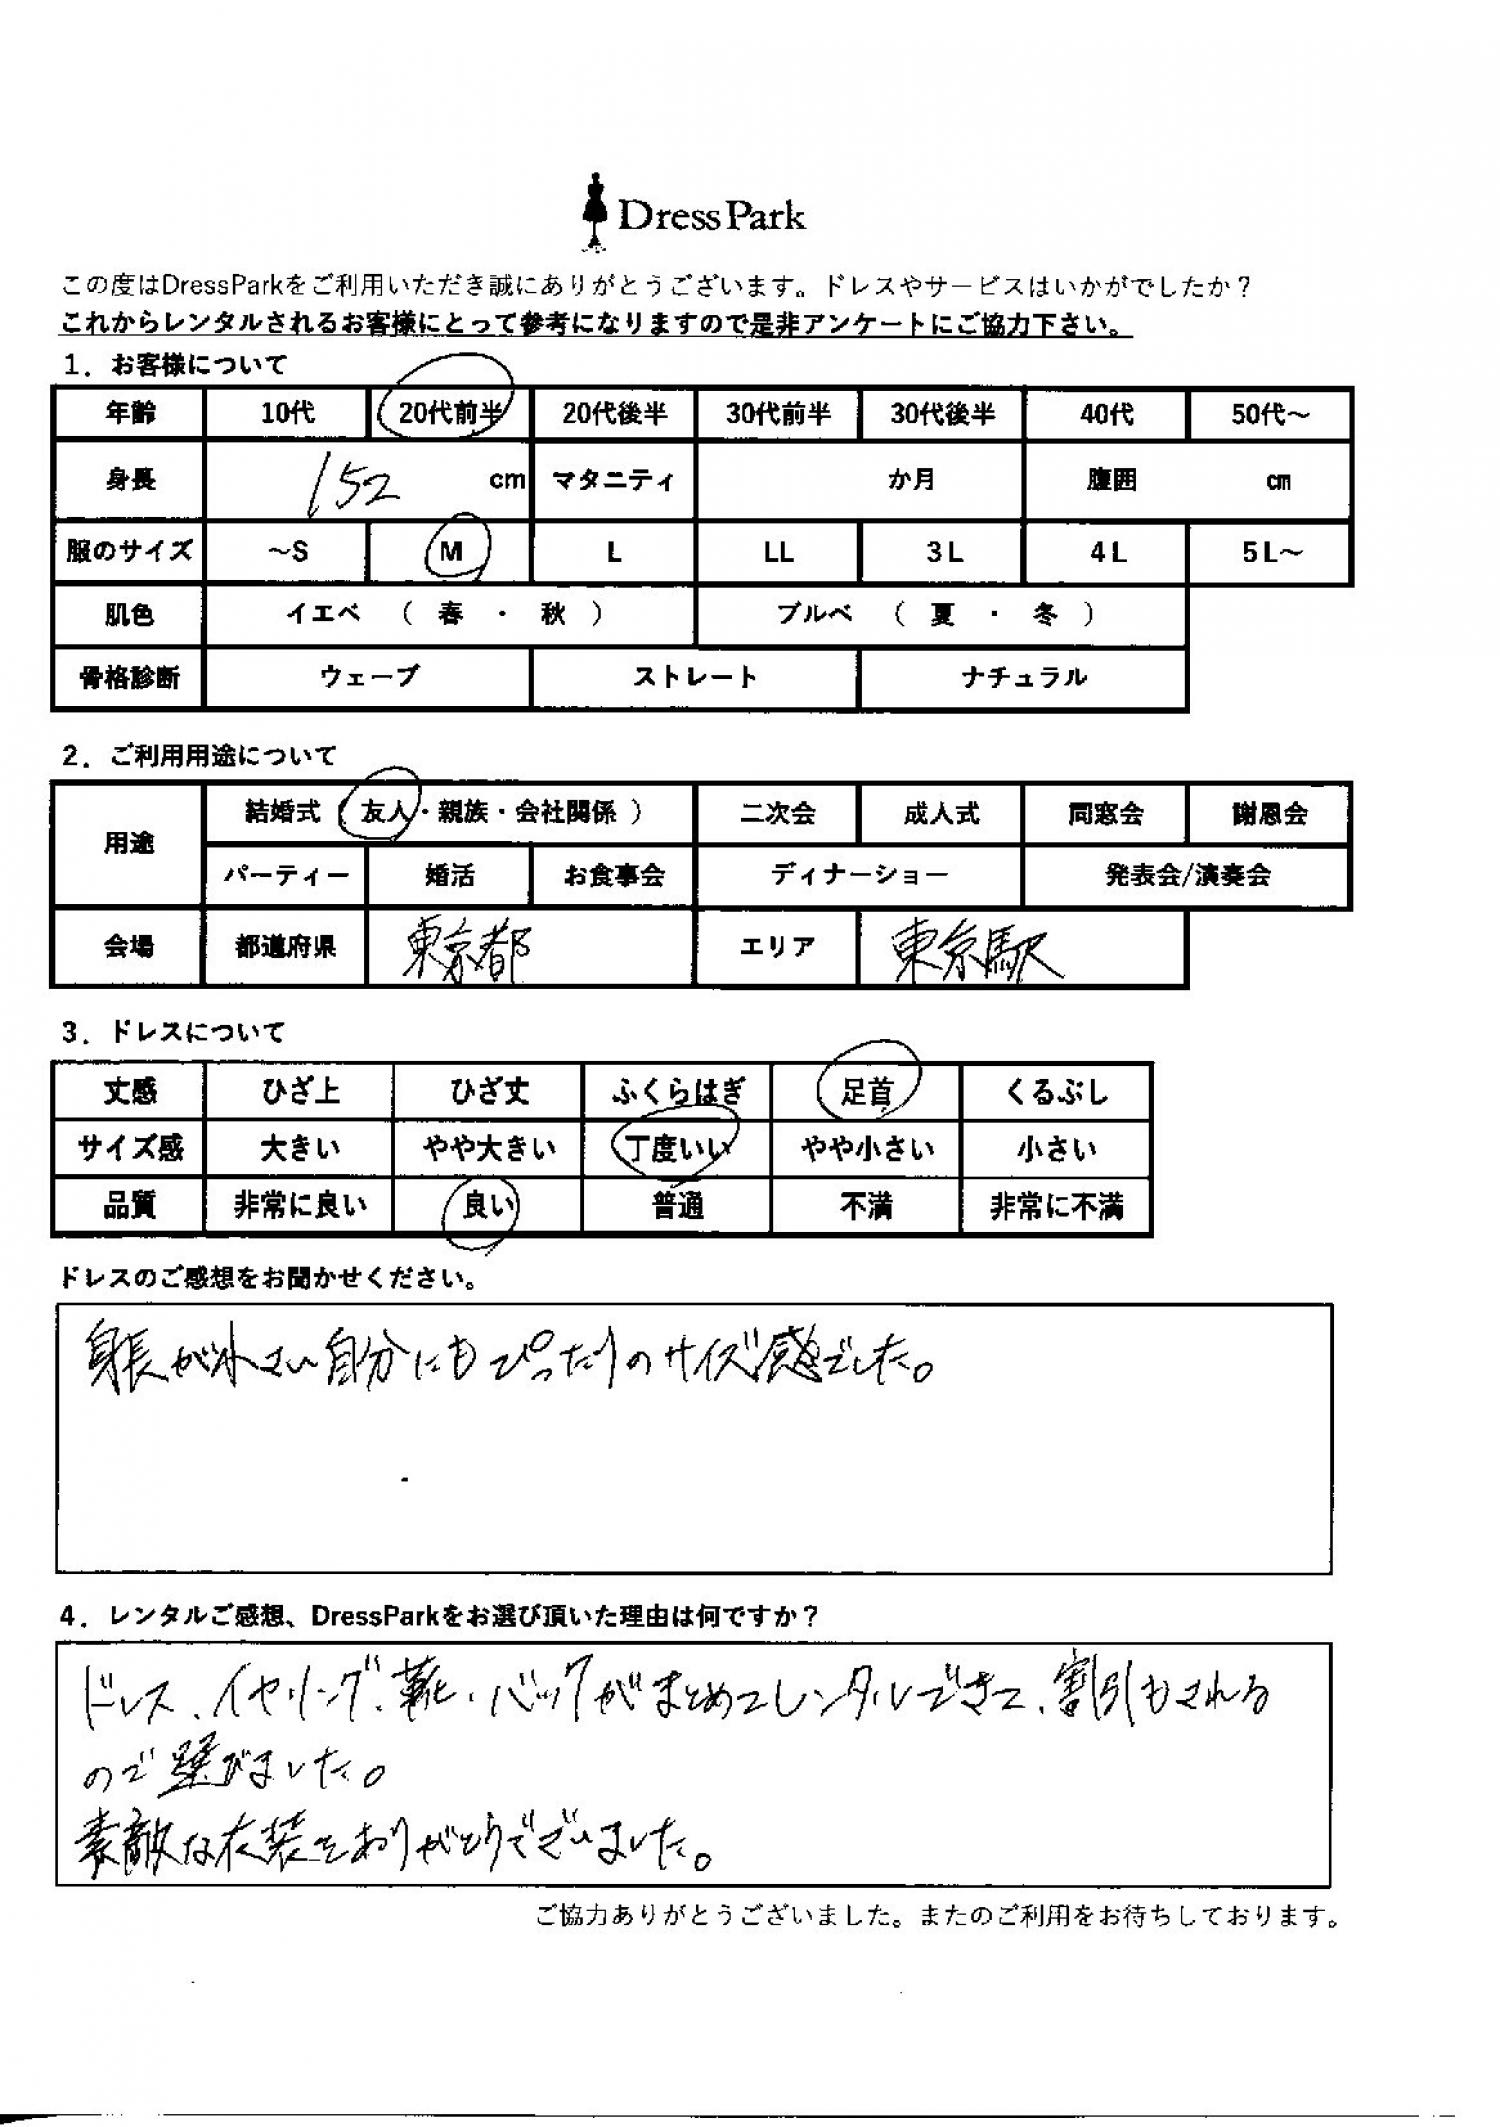 DressPark
この度はDressParkをご利用いただき誠にありがとうございます。ドレスやサービスはいかがでしたか？
これからレンタルされるお客様にとって参考になりますので是非アンケートにご協力下さい。
1．お客様について
年齢 10代 20代前半 20代後半 30代前半 30代後半 40代 50代～
身長 152 cm マタニティ か月 腹囲 ㎝
服のサイズ ～S M L LL 3L 4L 5L～
肌色 イエベ （ 春 ・ 秋 ） ブルベ （ 夏 ・ 冬 ）
骨格診断 ウェーブ ストレート ナチュラル
2．ご利用用途について
用途 結婚式（ 友人・親族・会社関係 ） 二次会 成人式 同窓会 謝恩会
パーティー 婚活 お食事会 ディナーショー 発表会/演奏会
会場 都道府県 東京都 エリア 東京駅
3．ドレスについて
丈感 ひざ上 ひざ丈 ふくらはぎ 足首 くるぶし
サイズ感 大きい やや大きい 丁度いい やや小さい 小さい
品質 非常に良い 良い 普通 不満 非常に不満
ドレスのご感想をお聞かせください。
身長が小さい自分にもぴったりのサイズ感でした。
4．レンタルご感想、DressParkをお選び頂いた理由は何ですか？
ドレス、イヤリング、靴、バッグがまとめてレンタルできて、割引もされる
ので選びました。
素敵な衣装をありがとうございました。
ご協力ありがとうございました。またのご利用をお待ちしております。